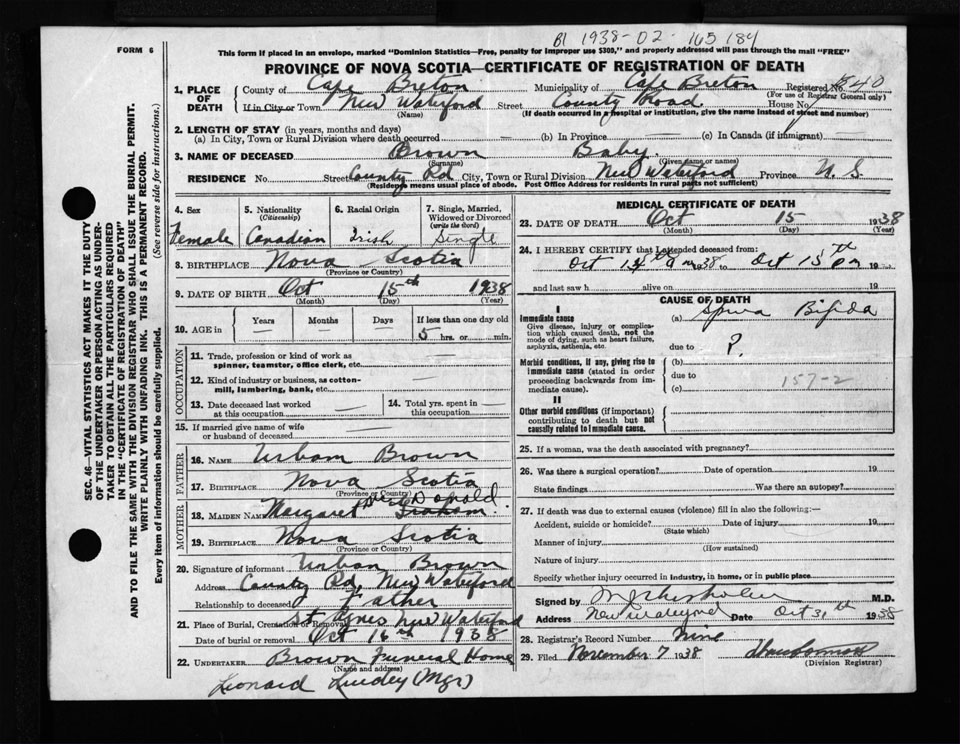 BI 1938-02-165184
FORM 6
This form if placed in an envelope, marked "Dominion Statistics—Free, penalty for improper use $300," and properly addressed will pass through the mail "FREE"
PROVINCE OF NOVA SCOTIA—CERTIFICATE OF REGISTRATION OF DEATH
1. PLACE OF DEATH County of Cape Breton Municipality of Cape Breton Registered No. 840
(For use of Registrar General only)
If in City or Town New Waterford Street County Road House No.
(Name) (If death occurred in a hospital or institution, give the name instead of street and number)
2. LENGTH OF STAY (in years, months and days)
(a) In City, Town or Rural Division where death occurred — (b) In Province — (c) In Canada (if immigrant) —
3. NAME OF DECEASED Brown Baby
(Surname) (Given name or names)
RESIDENCE No. Street County Rd City, Town or Rural Division New Waterford Province N. S.
(Residence means usual place of abode. Post Office Address for residents in rural parts not sufficient)
4. Sex Female
5. Nationality (Citizenship) Canadian
6. Racial Origin Irish
7. Single, Married, Widowed or Divorced (write the word) Single
8. BIRTHPLACE Nova Scotia
(Province or Country)
9. DATE OF BIRTH Oct 15th 1938
(Month) (Day) (Year)
10. AGE in Years — Months — Days — If less than one day old 5 hrs. or min.
OCCUPATION
11. Trade, profession or kind of work as spinner, teamster, office clerk, etc. —
12. Kind of industry or business, as cotton-mill, lumbering, bank, etc. —
13. Date deceased last worked at this occupation —
14. Total yrs. spent in this occupation —
15. If married give name of wife or husband of deceased —
FATHER
16. NAME Urban Brown
17. BIRTHPLACE Nova Scotia
(Province or Country)
MOTHER
18. MAIDEN NAME Margaret McDonald Graham
19. BIRTHPLACE Nova Scotia
(Province or Country)
20. Signature of informant Urban Brown
Address County Rd, New Waterford
Relationship to deceased Father
21. Place of Burial, Cremation or Removal St Agnes New Waterford
Date of burial or removal Oct 16th 1938
22. UNDERTAKER Brown Funeral Home
(Name and address)
Leonard Lindey (Mgr)
MEDICAL CERTIFICATE OF DEATH
23. DATE OF DEATH Oct 15 1938
(Month) (Day) (Year)
24. I HEREBY CERTIFY that I attended deceased from:
Oct 1938 to Oct 15th 19
and last saw h alive on 19
CAUSE OF DEATH
I
Immediate cause
Give disease, injury or complication which caused death, not the mode of dying, such as heart failure, asphyxia, asthenia, etc.
(a) Spina Bifida
due to ?
Morbid conditions, if any, giving rise to immediate cause (stated in order proceeding backwards from immediate cause).
(b)
due to
(c) 157-2
II
Other morbid conditions (if important) contributing to death but not causally related to immediate cause.
25. If a woman, was the death associated with pregnancy?
26. Was there a surgical operation? Date of operation 19
State findings Was there an autopsy?
27. If death was due to external causes (violence) fill in also the following:—
Accident, suicide or homicide? Date of injury 19
(State which)
Manner of injury
(How sustained)
Nature of injury
Specify whether injury occurred in industry, in home, or in public place
Signed by M.D.
Address New Waterford Date Oct 31th 1938
28. Registrar's Record Number Nine
29. Filed November 7 1938
(Division Registrar)
SEC. 46—VITAL STATISTICS ACT MAKES IT THE DUTY
OF THE UNDERTAKER OR PERSON ACTING AS UNDER-
TAKER TO OBTAIN ALL THE PARTICULARS REQUIRED
IN THE "CERTIFICATE OF REGISTRATION OF DEATH"
AND TO FILE THE SAME WITH THE DIVISION REGISTRAR WHO SHALL ISSUE THE BURIAL PERMIT.
WRITE PLAINLY WITH UNFADING INK. THIS IS A PERMANENT RECORD.
Every item of information should be carefully supplied. (See reverse side for instructions.)